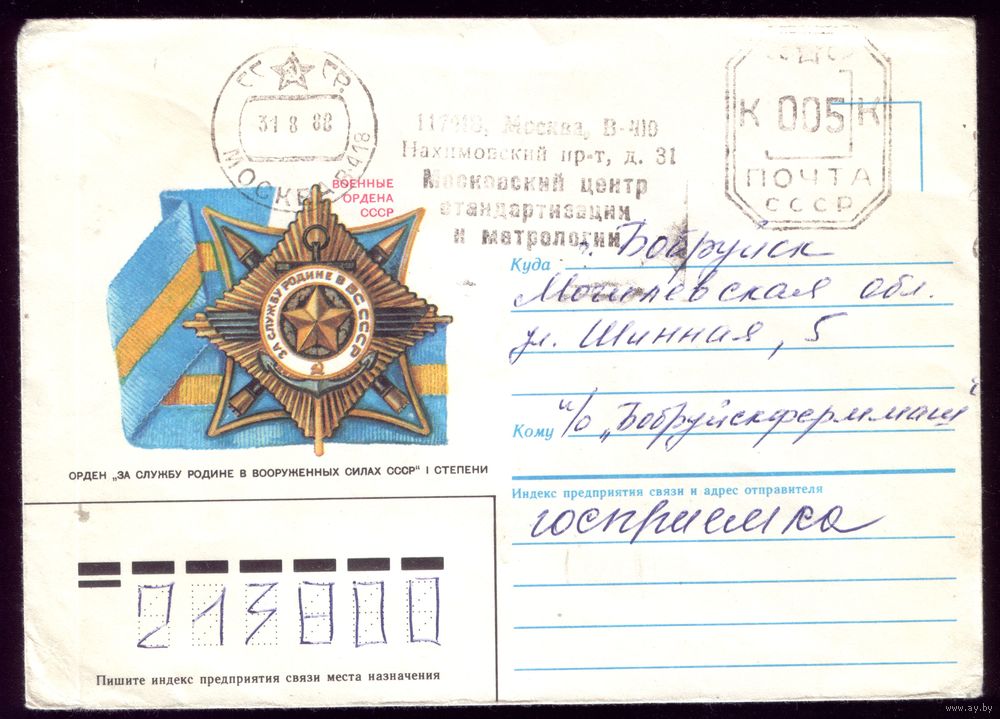 СС СР.
31 8 88
МОСКВА В418
117418, Москва, В-418
Нахимовский пр-т, д. 31
Московский центр
стандартизации
и метрологии
СССР
К 005 К
ПОЧТА
СССР
ВОЕННЫЕ
ОРДЕНА
СССР
ЗА СЛУЖБУ РОДИНЕ В ВС СССР
ОРДЕН „ЗА СЛУЖБУ РОДИНЕ В ВООРУЖЕННЫХ СИЛАХ СССР“ I СТЕПЕНИ
Куда г. Бобруйск
Могилевская обл.
ул. Шинная, 5
Кому п/о „Бобруйскферммаш“
Индекс предприятия связи и адрес отправителя
госприемка
213800
Пишите индекс предприятия связи места назначения
www.ay.by